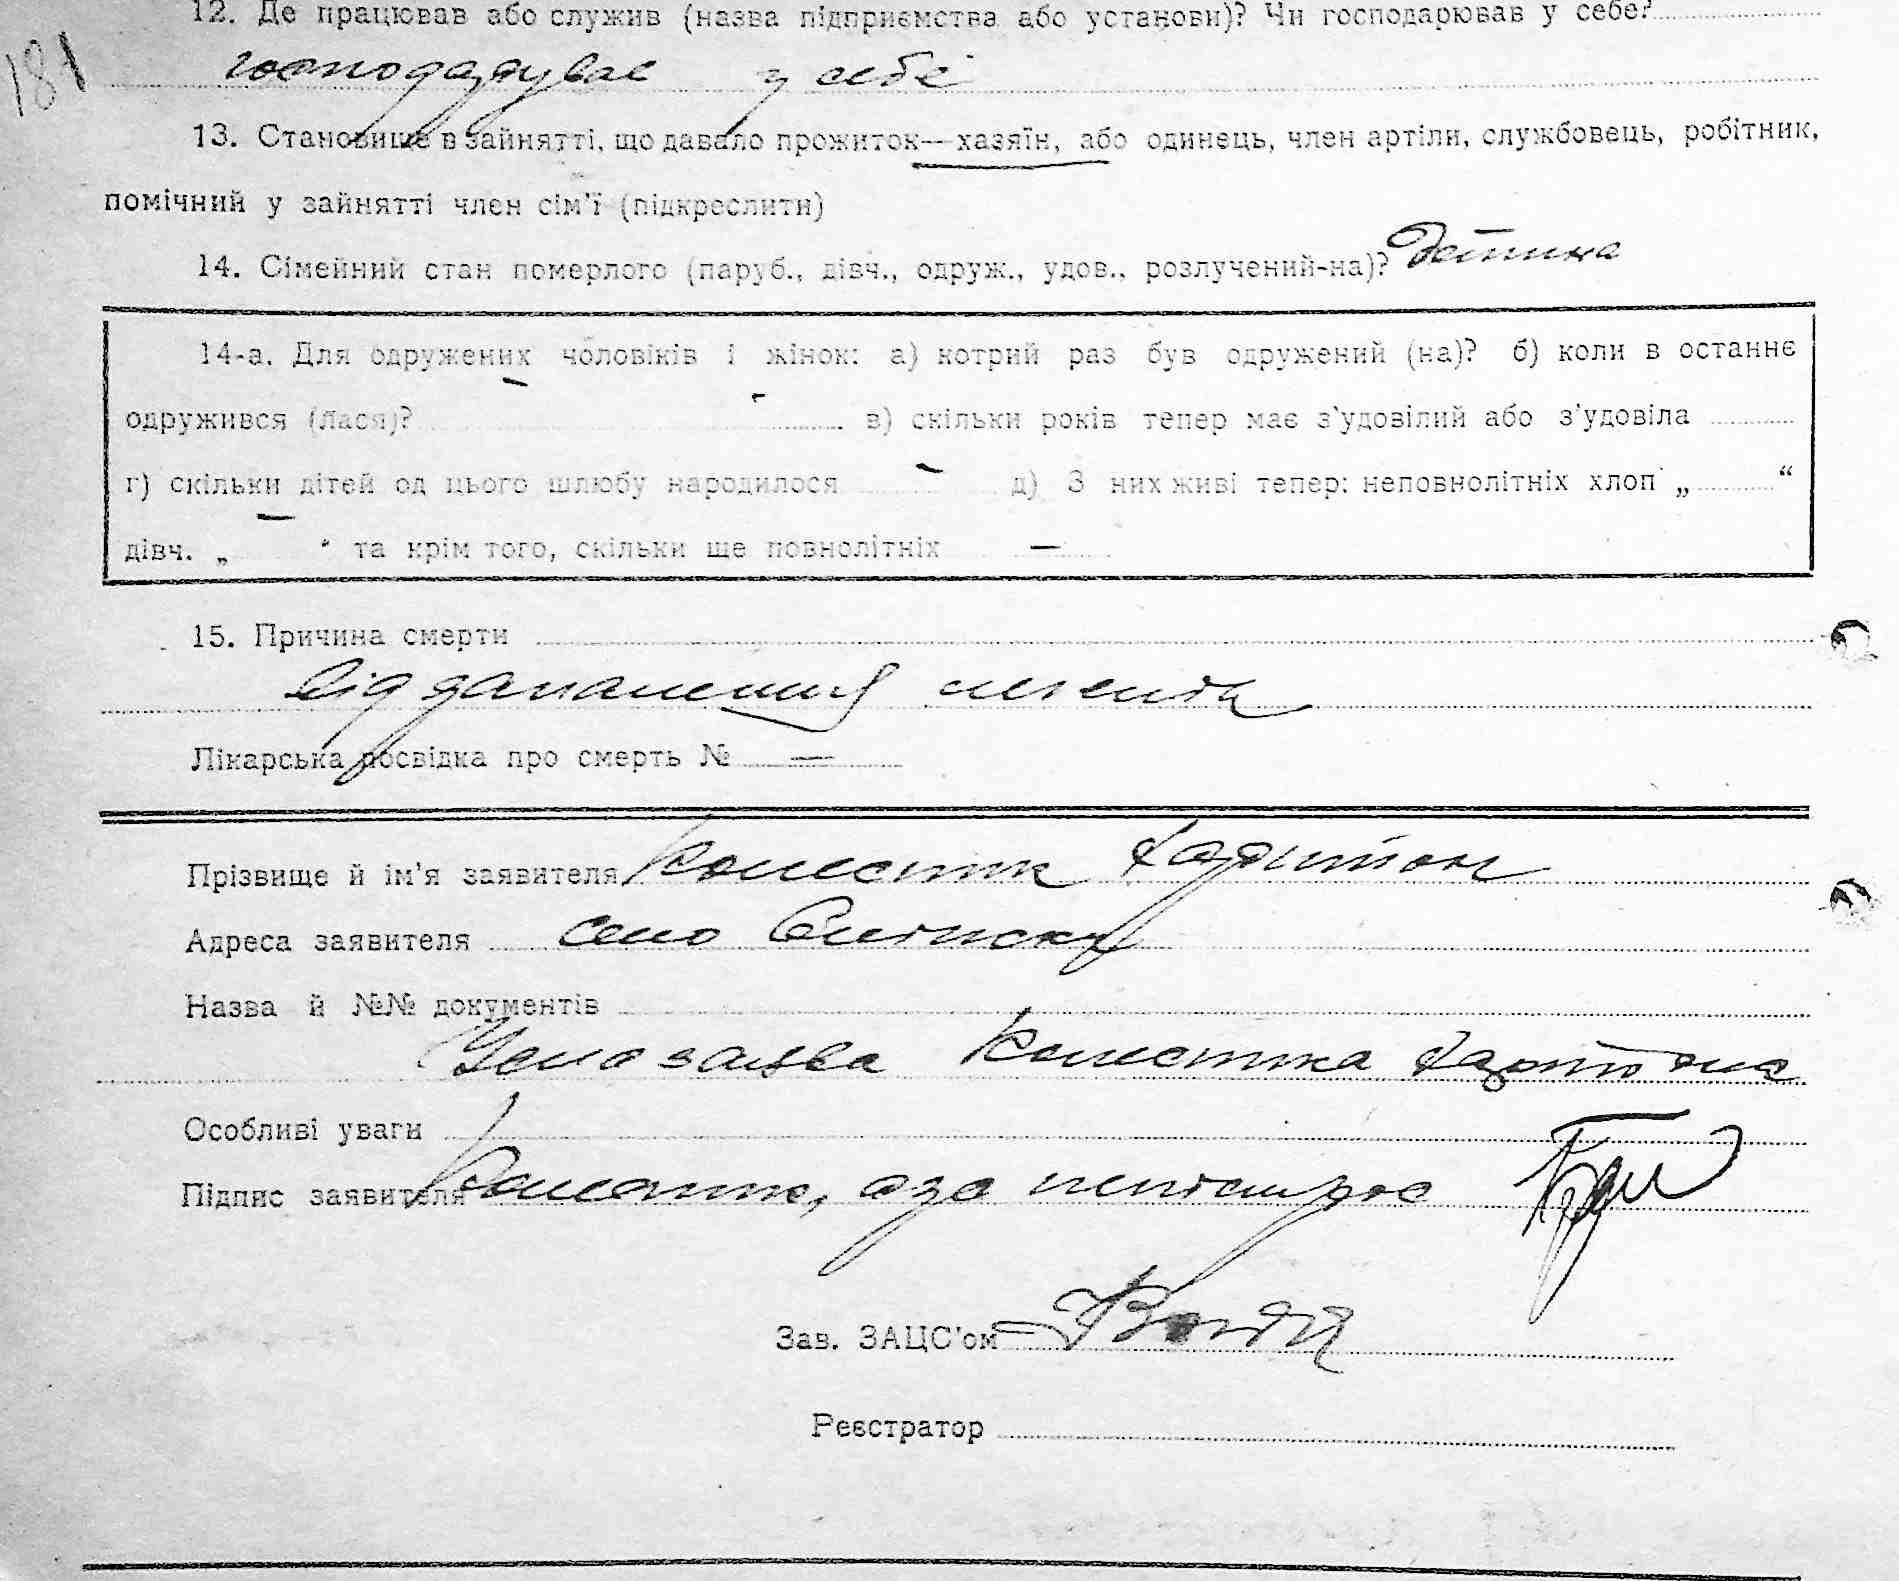 12. Де працював або служив (назва підприємства або установи)? Чи господарював у себе?
181
господарував у себе
13. Становище в зайнятті, що давало прожиток—хазяїн, або одинець, член артіли, службовець, робітник,
помічний у зайнятті член сім'ї (підкреслити)
14. Сімейний стан померлого (паруб., дівч., одруж., удов., розлучений-на)? Детина
14-а. Для одружених чоловіків і жінок: а) котрий раз був одружений (на)? б) коли в останнє
одружився (лася)? — в) скільки років тепер має з'удовілий або з'удовіла
г) скільки дітей од цього шлюбу народилося — д) З них живі тепер: неповнолітніх хлоп „ “
дівч. „ — “ та крім того, скільки ще повнолітніх —
15. Причина смерти
Від запалення легенів
Лікарська посвідка про смерть № —
Прізвище й ім'я заявителя Колесник Харитон
Адреса заявителя село
Назва й №№ документів
заява Колесника Харитона
Особливі уваги
Підпис заявителя Колесник, а за
Зав. ЗАЦС'ом
Реєстратор